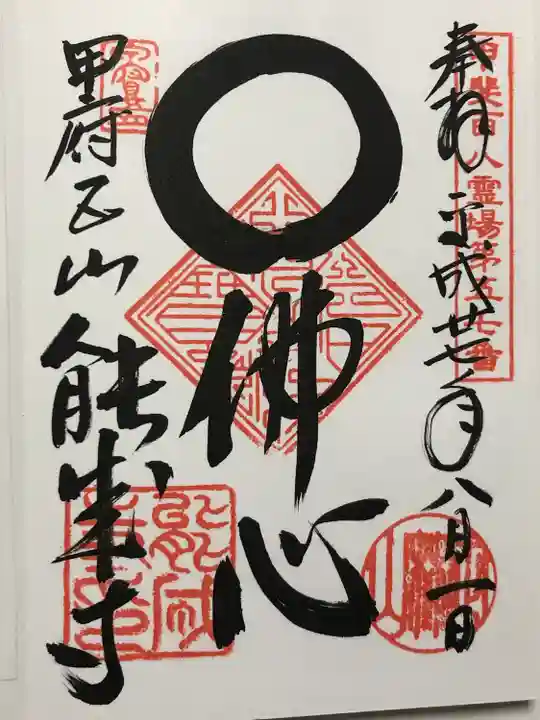 甲斐百八霊場第五七番
奉拝 平成廿七年八月一日
佛心
甲府五山 能成寺